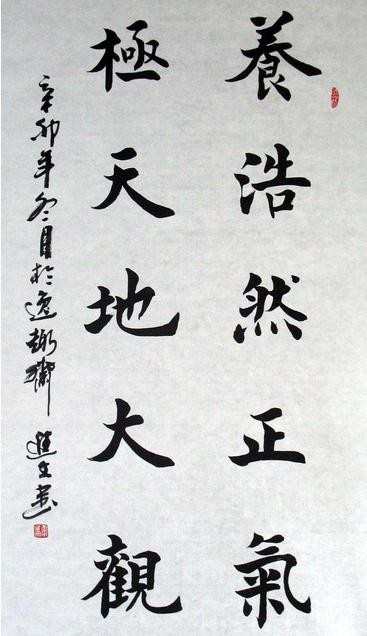 養浩然正氣
極天地大觀
辛卯年冬月於逸
進文書